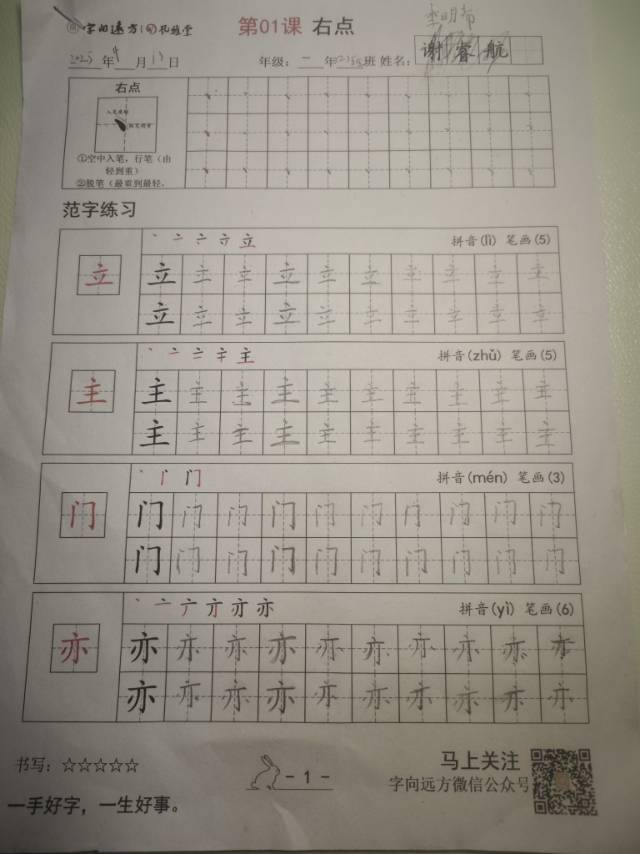 字向远方 孔雅堂 第01课 右点 李明希
2025年9月13日 年级：二年 班 姓名：谢睿航
右点
①空中入笔，行笔（由
轻到重）
②脱笔（最重到最轻，
范字练习
丶 亠 立 拼音(lì) 笔画(5)
立 立 立 立 立 立 立 立 立 立 立
立 立 立 立 立 立 立 立 立 立
丶 亠 主 拼音(zhǔ) 笔画(5)
主 主 主 主 主 主 主 主 主 主 主
主 主 主 主 主 主 主 主 主 主
丶 门 拼音(mén) 笔画(3)
门 门 门 门 门 门 门 门 门 门 门
门 门 门 门 门 门 门 门 门 门
丶 亠 亦 拼音(yì) 笔画(6)
亦 亦 亦 亦 亦 亦 亦 亦 亦 亦 亦
亦 亦 亦 亦 亦 亦 亦 亦 亦 亦
书写：☆☆☆☆☆ - 1 - 马上关注
字向远方微信公众号
一手好字，一生好事。